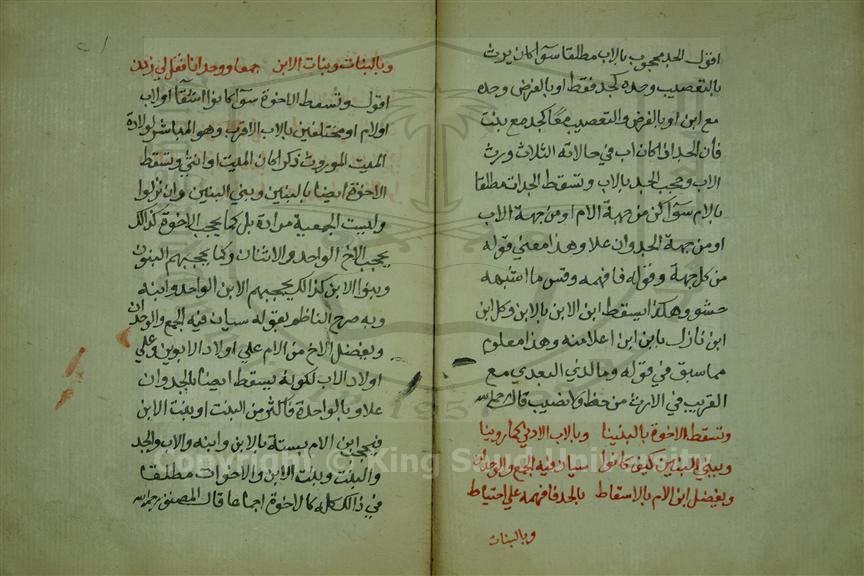 اقول الجد محجوب بالاب مطلقا سوآ كان يرث
بالتعصيب وحده كجد فقط او بالفرض وحده
مع ابن او بالفرض والتعصيب معًا كجد مع بنت
فأن الجد اذا كان اب في حالاته الثلاث ورث
الاب وحجب الجد بالاب وتسقط الجدات مطلقا
بالام سوآ كن من جهة الام او من جهة الاب
او من جهة الجد وان علا وهذا معني قوله
من كل جهة وقوله فافهمه وقس ما اشبهه
حشو وهكذا يسقط ابن الابن بالابن وكل ابن
ابن نازل بابن ابن اعلا منه وهذا معلوم
مما سبق في قوله وما لذي البعدي مع
القريب في الارث من حظ ولا نصيب قال رحمه الله
وتسقط الاخوة بالبنينا وبالاب الادني كما روينا
وببني البنين كيف كانوا سيان فيه الجمع والوحدان
ويفضل ابن الام بالاسقاط بالجد فافهمه علي احتياط
وبالبنات
وبالبنات وبنات الابن جمعا ووحدانا فقل لي زدني
اقول وتسقط الاخوة سوآ كانوا اشقآ او لاب
او لام او مختلفين بالاب الاقرب وهو المباشر لولادة
الميت الموروث ذكرا كان الميت او انثي وتسقط
الاخوة ايضا بالبنين وببني البنين وان نزلوا
وليست الجمعية مرادة بل كما يحجب الاخوة كذالك
يحجب الاخ الواحد والاثنان وكما يحجبهم البنون
وبنوا الابن كذالك يحجبهم الابن الواحد وابنه
وبه صرح الناظم بقوله سيان فيه الجمع والوحدان
ويفضل الاخ من الام علي اولاد الابوين وعلي
اولاد الاب لكونه يسقط ايضا بالجد وان
علا وبالواحدة فأكثر من البنت او بنت الابن
فيحجب ابن الام بستة بالابن وابنه والاب والجد
والبنت وبنت الابن والاخوات مطلقا
في ذالك كله كالاخوة اجماعا قال المصنف رحمه الله
Copyright © King Saud University
1957